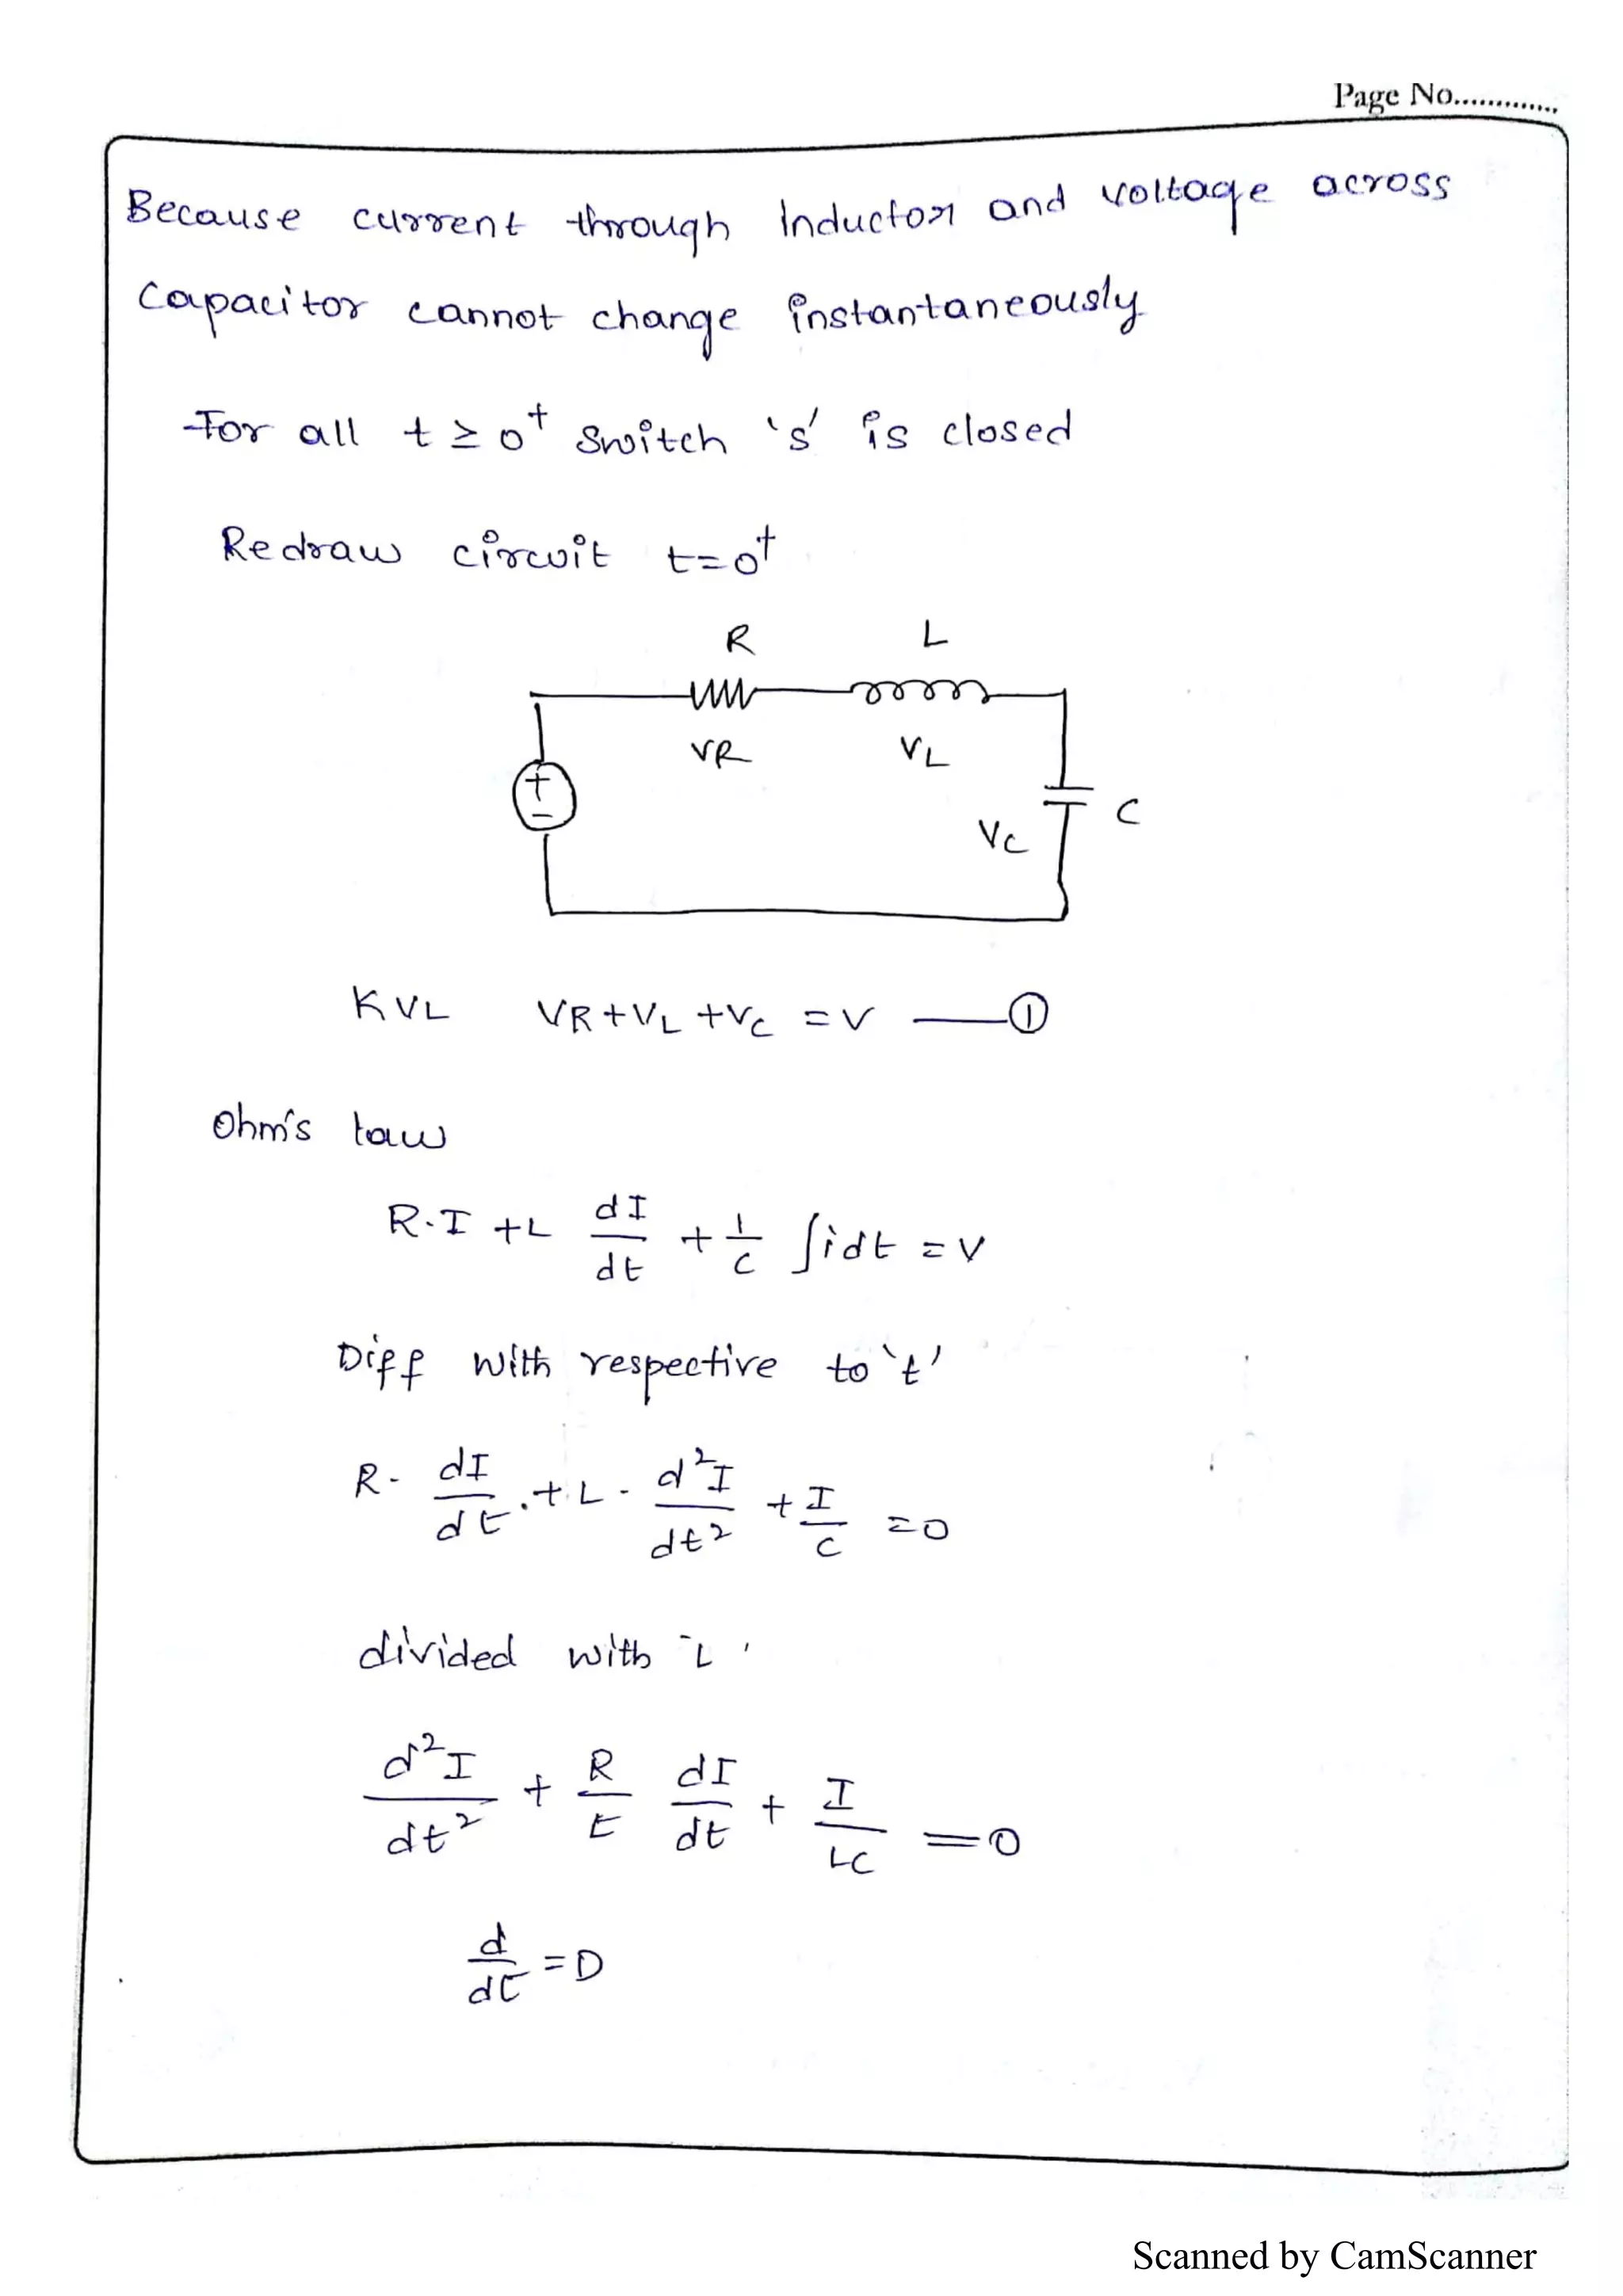 Page No.............
Because current through Inductor and voltage across
Capacitor cannot change instantaneously
For all t ≥ 0⁺ Switch 's' is closed
Redraw circuit t=0⁺
R L
VR VL
+
−
C
VC
KVL VR+VL+VC = V —— ①
Ohm's law
R.I + L dI/dt + 1/C ∫idt = V
Diff with respective to 't'
R. dI/dt + L. d²I/dt² + I/C = 0
divided with 'L'
d²I/dt² + R/t dI/dt + I/LC = 0
d/dt = D
Scanned by CamScanner